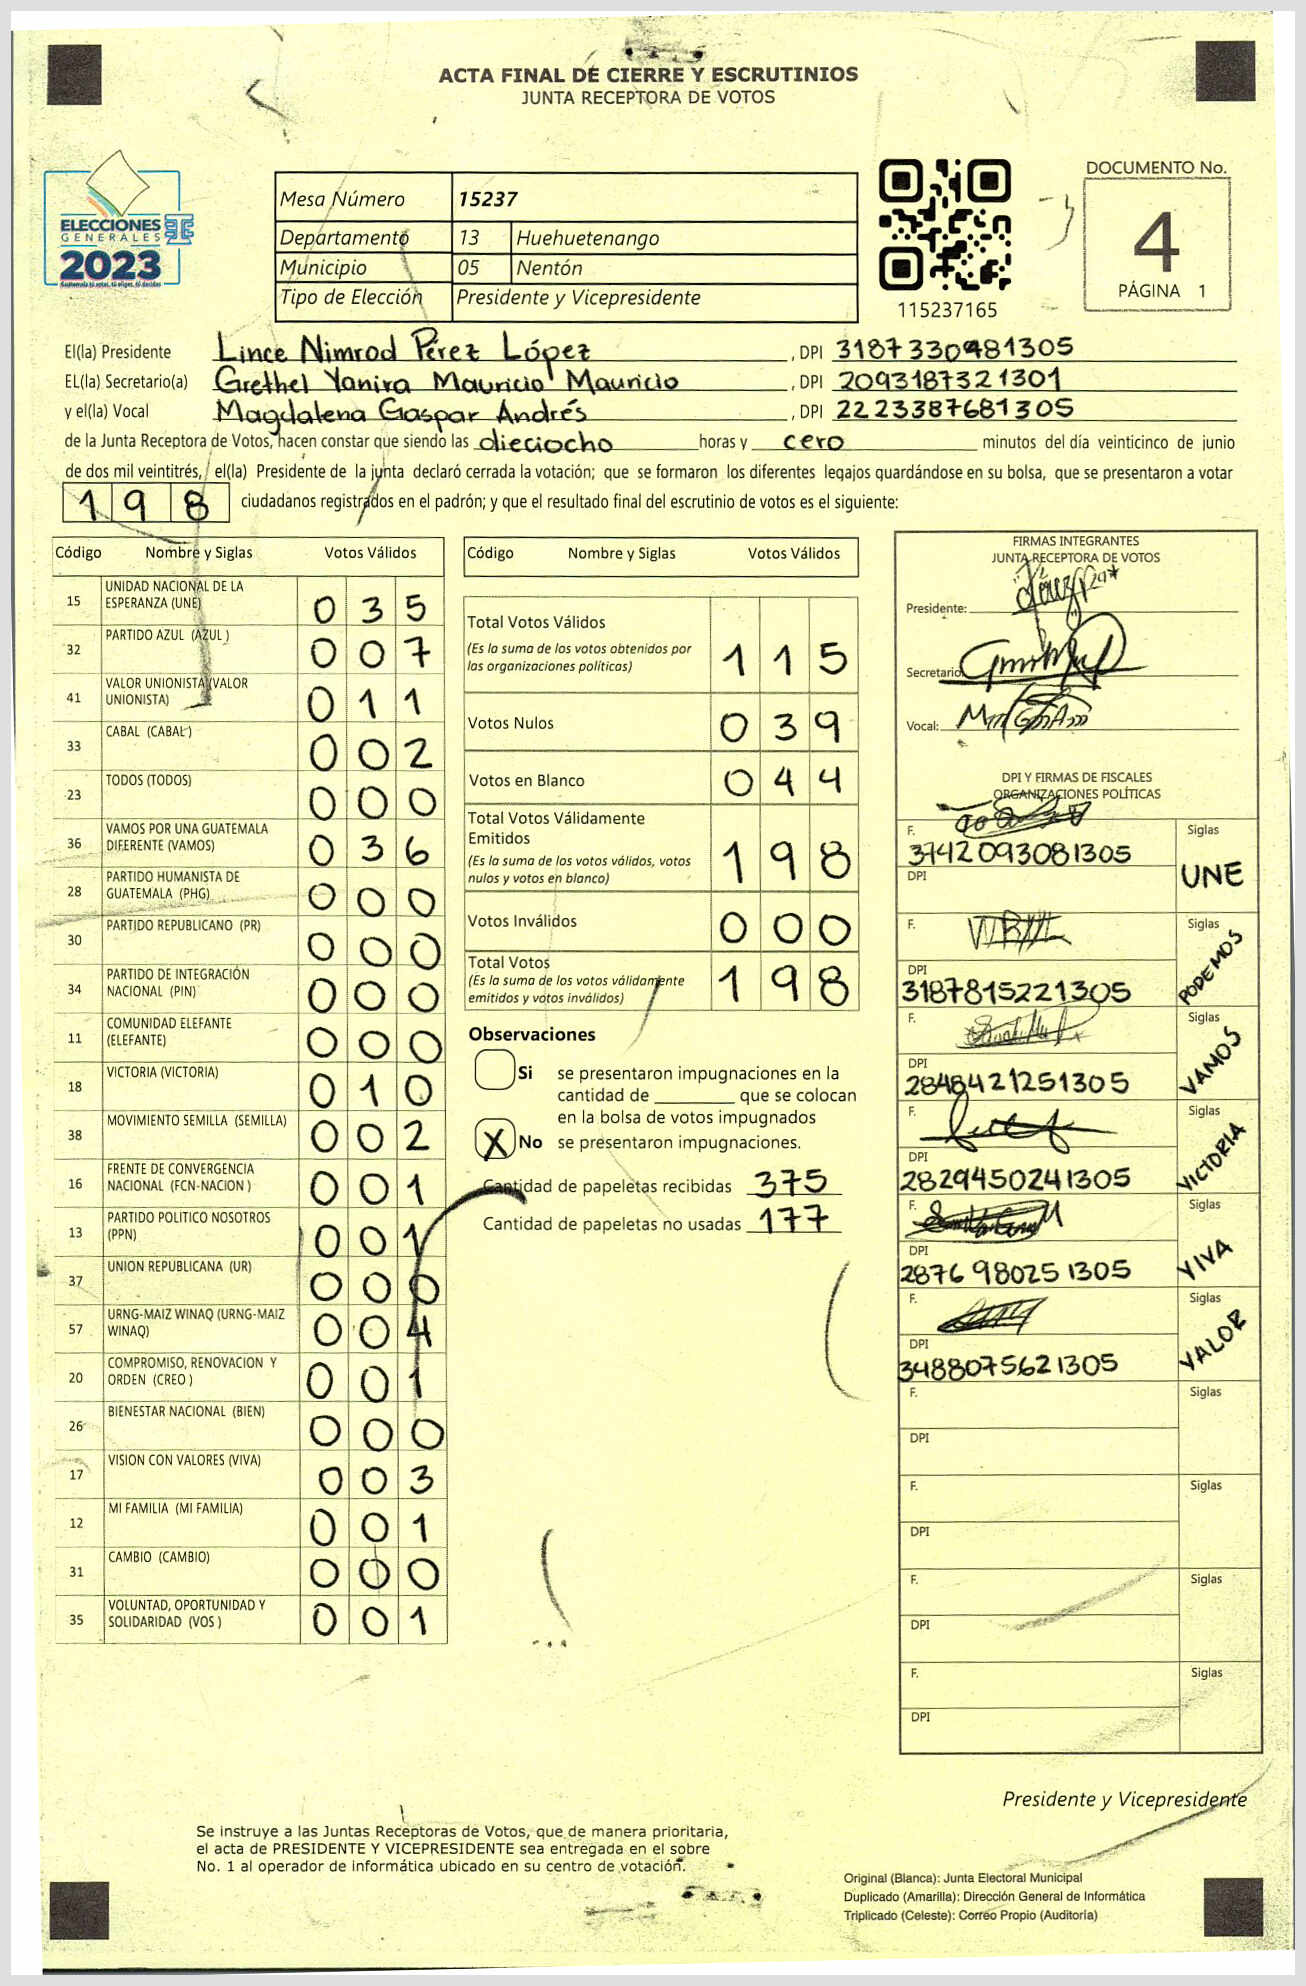 ACTA FINAL DE CIERRE Y ESCRUTINIOS
JUNTA RECEPTORA DE VOTOS
ELECCIONES
GENERALES
2023
Guatemala tú votas, tú eliges, tú decides
Mesa Número 15237
Departamento 13 Huehuetenango
Municipio 05 Nentón
Tipo de Elección Presidente y Vicepresidente
115237165
DOCUMENTO No.
4
PÁGINA 1
El(la) Presidente Lince Nimrod Pérez López, DPI 3187330481305
EL(la) Secretario(a) Grethel Yanira Mauricio Mauricio, DPI 2093187321301
y el(la) Vocal Magdalena Gaspar Andrés, DPI 2223387681305
de la Junta Receptora de Votos, hacen constar que siendo las dieciocho horas y cero minutos del día veinticinco de junio
de dos mil veintitrés, el(la) Presidente de la junta declaró cerrada la votación; que se formaron los diferentes legajos guardándose en su bolsa, que se presentaron a votar
198 ciudadanos registrados en el padrón; y que el resultado final del escrutinio de votos es el siguiente:
Código Nombre y Siglas Votos Válidos
15 UNIDAD NACIONAL DE LA ESPERANZA (UNE) 035
32 PARTIDO AZUL (AZUL ) 007
41 VALOR UNIONISTA (VALOR UNIONISTA) 011
33 CABAL (CABAL ) 002
23 TODOS (TODOS) 000
36 VAMOS POR UNA GUATEMALA DIFERENTE (VAMOS) 036
28 PARTIDO HUMANISTA DE GUATEMALA (PHG) 000
30 PARTIDO REPUBLICANO (PR) 000
34 PARTIDO DE INTEGRACIÓN NACIONAL (PIN) 000
11 COMUNIDAD ELEFANTE (ELEFANTE) 000
18 VICTORIA (VICTORIA) 010
38 MOVIMIENTO SEMILLA (SEMILLA) 002
16 FRENTE DE CONVERGENCIA NACIONAL (FCN-NACION ) 001
13 PARTIDO POLITICO NOSOTROS (PPN) 001
37 UNION REPUBLICANA (UR) 000
57 URNG-MAIZ WINAQ (URNG-MAIZ WINAQ) 004
20 COMPROMISO, RENOVACION Y ORDEN (CREO ) 001
26 BIENESTAR NACIONAL (BIEN) 000
17 VISION CON VALORES (VIVA) 003
12 MI FAMILIA (MI FAMILIA) 001
31 CAMBIO (CAMBIO) 000
35 VOLUNTAD, OPORTUNIDAD Y SOLIDARIDAD (VOS ) 001
Código Nombre y Siglas Votos Válidos
Total Votos Válidos
(Es la suma de los votos obtenidos por
las organizaciones políticas) 115
Votos Nulos 039
Votos en Blanco 044
Total Votos Válidamente
Emitidos
(Es la suma de los votos válidos, votos
nulos y votos en blanco) 198
Votos Inválidos 000
Total Votos
(Es la suma de los votos válidamente
emitidos y votos inválidos) 198
Observaciones
Si se presentaron impugnaciones en la
cantidad de ________ que se colocan
en la bolsa de votos impugnados
X No se presentaron impugnaciones.
Cantidad de papeletas recibidas 375
Cantidad de papeletas no usadas 177
FIRMAS INTEGRANTES
JUNTA RECEPTORA DE VOTOS
Presidente:
Secretario:
Vocal:
DPI Y FIRMAS DE FISCALES
ORGANIZACIONES POLÍTICAS
F. Siglas
3742093081305
DPI UNE
F. Siglas
DPI PODEMOS
3187815221305
F. Siglas
DPI VAMOS
2848421251305
F. Siglas
DPI VICTORIA
2829450241305
F. Siglas
DPI VIVA
2876980251305
F. Siglas
DPI VALOR
3488075621305
F. Siglas
DPI
F. Siglas
DPI
F. Siglas
DPI
F. Siglas
DPI
Presidente y Vicepresidente
Se instruye a las Juntas Receptoras de Votos, que de manera prioritaria,
el acta de PRESIDENTE Y VICEPRESIDENTE sea entregada en el sobre
No. 1 al operador de informática ubicado en su centro de votación.
Original (Blanca): Junta Electoral Municipal
Duplicado (Amarilla): Dirección General de Informática
Triplicado (Celeste): Correo Propio (Auditoría)